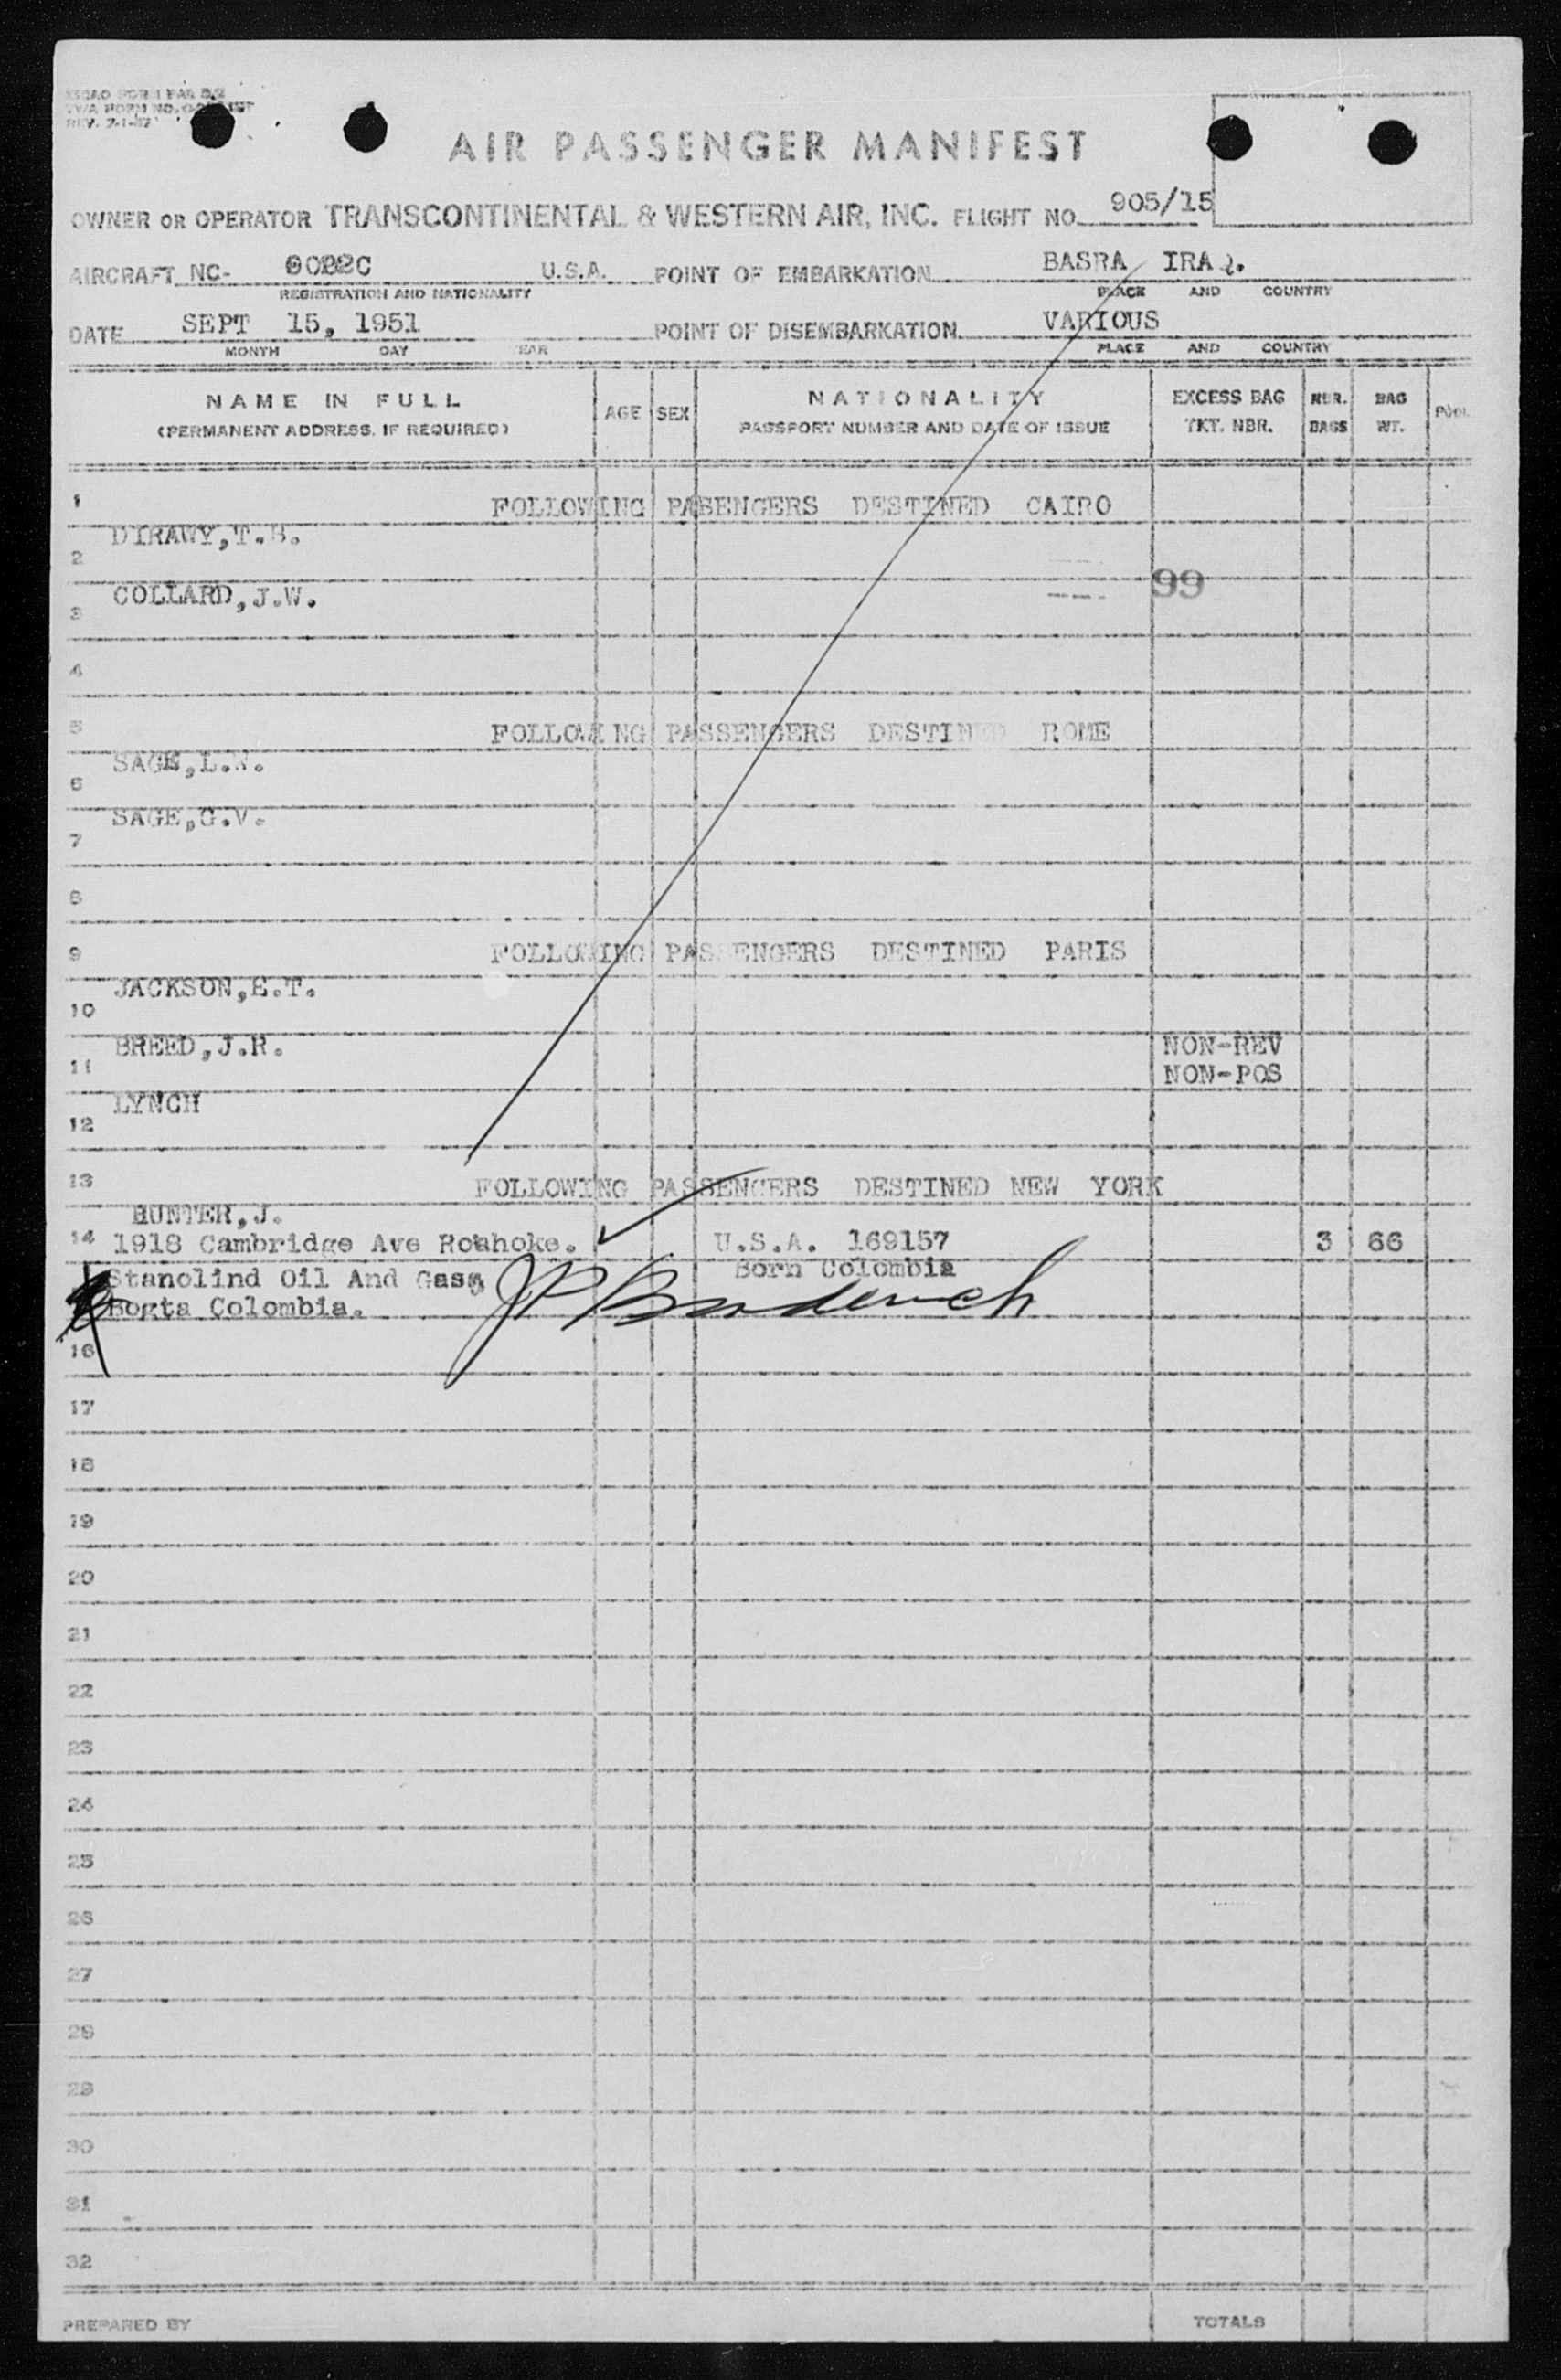 REV. 7-1-47
AIR PASSENGER MANIFEST
OWNER OR OPERATOR TRANSCONTINENTAL & WESTERN AIR, INC. FLIGHT NO. 905/15
AIRCRAFT NC- U.S.A. POINT OF EMBARKATION BASRA IRAQ.
REGISTRATION AND NATIONALITY PLACE AND COUNTRY
DATE SEPT 15, 1951 POINT OF DISEMBARKATION VARIOUS
MONTH DAY YEAR PLACE AND COUNTRY
NAME IN FULL AGE SEX NATIONALITY EXCESS BAG NBR. BAG POOL
(PERMANENT ADDRESS, IF REQUIRED) PASSPORT NUMBER AND DATE OF ISSUE TKT. NBR. BAGS WT.
1 FOLLOWING PASENGERS DESTINED CAIRO
DIRAWY,T.S.
2
COLLARD,J.W. 99
3
4
5 FOLLOWING PASSENGERS DESTINED ROME
SAGE,L.W.
6
SAGE,G.V.
7
8
9 FOLLOWING PASSENGERS DESTINED PARIS
JACKSON,E.T.
10
BREED,J.R. NON-REV
11 NON-POS
LYNCH
12
13 FOLLOWING PASSENGERS DESTINED NEW YORK
HUNTER,J.
14 1918 Cambridge Ave Roahoke. U.S.A. 169157 3 66
Stanolind Oil And Gas, Born Colombia
Bogta Colombia.
16
17
18
19
20
21
22
23
24
25
26
27
28
29
30
31
32
PREPARED BY TOTALS